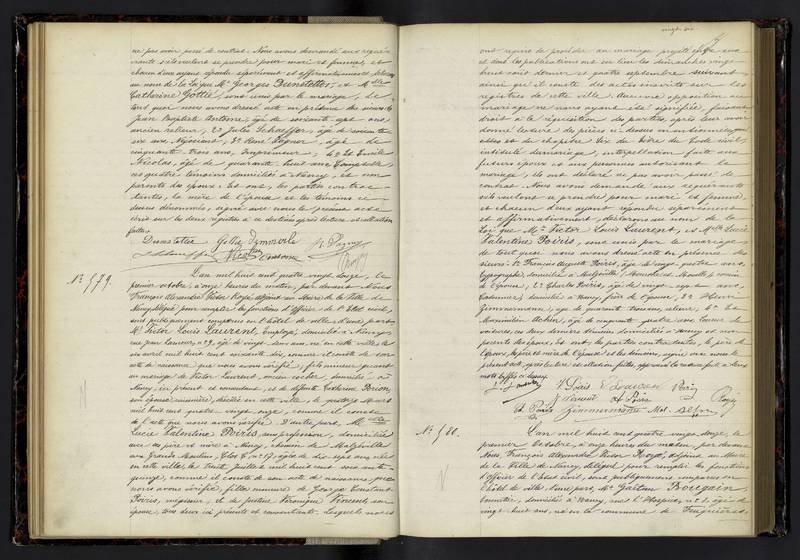 ne pas avoir passé de contrat. Nous avons demandé aux requé-
rants s'ils veulent se prendre pour mari et femme, et
chacun d'eux ayant répondu séparément et affirmativement
au nom de la Loi que Mr Georges Dunstetter, et Mlle
Catherine Gotté, sont unis par le mariage, de
tout quoi nous avons dressé acte en présence des sieurs
Jean Baptiste Antoine, âgé de soixante-sept ans,
ancien relieur, 2° Jules Schaeffer, âgé de soixante
six ans, Négociant, 3° René Pagny, âgé de
cinquante trois ans, Imprimeur, 4° Emile
Nicolas, âgé de quarante huit ans, Comptable
ces quatre témoins domiciliés à Nancy, et non
parents des époux. Et ont, les parties contrac-
tantes, la mère de l'épouse et les témoins ci-
dessus dénommés, signé avec nous le présent acte
écrit sur les deux registres à ce destinés après lecture et collation
faites.
No. 579.
L'an mil huit cent quatre vingt douze, le
premier octobre, à onze heures du matin, par devant Nous
François Alexandre Victor Royé, adjoint au Maire de la Ville de
Nancy, délégué pour remplir les fonctions d'Officier de l'Etat civil,
sont publiquement comparus en l'hôtel de ville, d'une part,
Mr Victor Louis Laurent, Employé, domicilié à Nancy,
rue Jean Lamour, n° 29, âgé de vingt deux ans, né en cette ville le
six avril mil huit cent soixante dix, comme il conste de son
acte de naissance que nous avons vérifié; fils mineur quant
au mariage de Victor Laurent, ancien cocher, domicilié à
Nancy, ici présent et consentant, et de défunte Catherine
son épouse, cuisinière, décédée en cette ville, le quatorze Mars
mil huit cent quatre vingt onze, comme il conste
de l'acte que nous avons vérifié. D'autre part, Mlle
Lucie Valentine Poiris, sans profession, domiciliée
avec ses père et mère à Nancy, chemin de Malzéville
aux Grands Moulins, n° 17, âgée de dix sept ans, née
en cette ville, le trente Juillet mil huit cent soixante
quinze, comme il conste de son acte de naissance, que
nous avons vérifié, fille mineure de George Constant
Poiris, mégissier, et de Justine Véronique Vincent, son
épouse, tous deux ici présents et consentants. Lesquels nous
vingt six
ont requis de procéder au mariage projeté entre eux
et dont les publications ont eu lieu les dimanches vingt
huit août dernier et quatre septembre suivant,
ainsi qu'il conste des actes inscrits sur les
registres de cette ville. Aucune opposition au
mariage ne nous ayant été signifiée, faisant
droit à la réquisition des parties, après leur avoir
donné lecture des pièces ci-dessus mentionnées
et du chapitre six du titre du Code civil,
intitulé du mariage, interpellation faite aux
futurs époux et aux personnes autorisant le
mariage, ils ont déclaré ne pas avoir passé de
contrat. Nous avons demandé aux requérants
s'ils veulent se prendre pour mari et femme,
et chacun d'eux ayant répondu séparément
et affirmativement, déclarons au nom de la
Loi que Mr Victor Louis Laurent, et Mlle Lucie
Valentine Poiris, sont unis par le mariage,
de tout quoi nous avons dressé acte en présence des
sieurs: 1° François Auguste Poiris, âgé de vingt quatre ans,
typographe, domicilié à Malzéville (Meurthe et Moselle), cousin
de l'épouse; 2° Charles Poiris, âgé de vingt sept ans,
domicilié à Nancy, frère de l'épouse; 3° Henri
Zimmermann, âgé de quarante trois ans, relieur; 4° et
Maximilien, âgé de cinquante quatre ans, loueur de
voitures, ces deux derniers témoins domiciliés à Nancy et non
parents des époux. Et ont, les parties contractantes, le père de
l'époux, les père et mère de l'épouse et les témoins, signé avec nous le
présent acte, après lecture et collation faites, approuvé la rature faite à deux
mots biffés ci-dessus.
No. 580.
L'an mil huit cent quatre vingt douze, le
premier Octobre, à onze heures du matin, par devant
Nous, François Alexandre Victor Royé, adjoint au Maire
de la Ville de Nancy, délégué pour remplir les fonctions
d'Officier de l'Etat civil, sont publiquement comparus en
l'hôtel de ville, d'une part, Mr Gaëtan Bourgeois,
domicilié à Nancy, rue, âgé de
vingt huit ans, né en la commune de